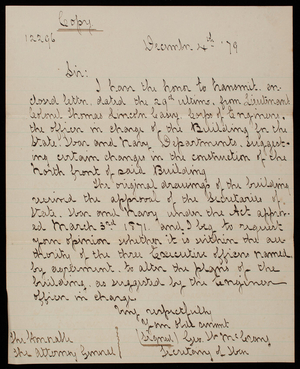 Copy
12296
December 4th '79
Sir:
I have the honor to transmit en-
closed letter, dated the 29th ultimo, from Lieutenant
Colonel Thomas Lincoln Casey, Corps of Engineers,
the officer in charge of the Building for the
State, War and Navy Departments, suggest-
ing certain changes in the construction of the
North front of said Building.
The original drawings of the building
received the approval of the Secretaries of
State, War and Navy under the Act approv-
ed March 3rd 1871, and I beg to request
your opinion whether it is within the au-
thority of the three Executive officers named
by agreement, to alter the plans of the
building, as suggested by the Engineer
officer in charge.
Very respectfully
Your Obt. servant
(Signed) Geo. W. McCrary
Secretary of War
The Honorable
The Attorney General